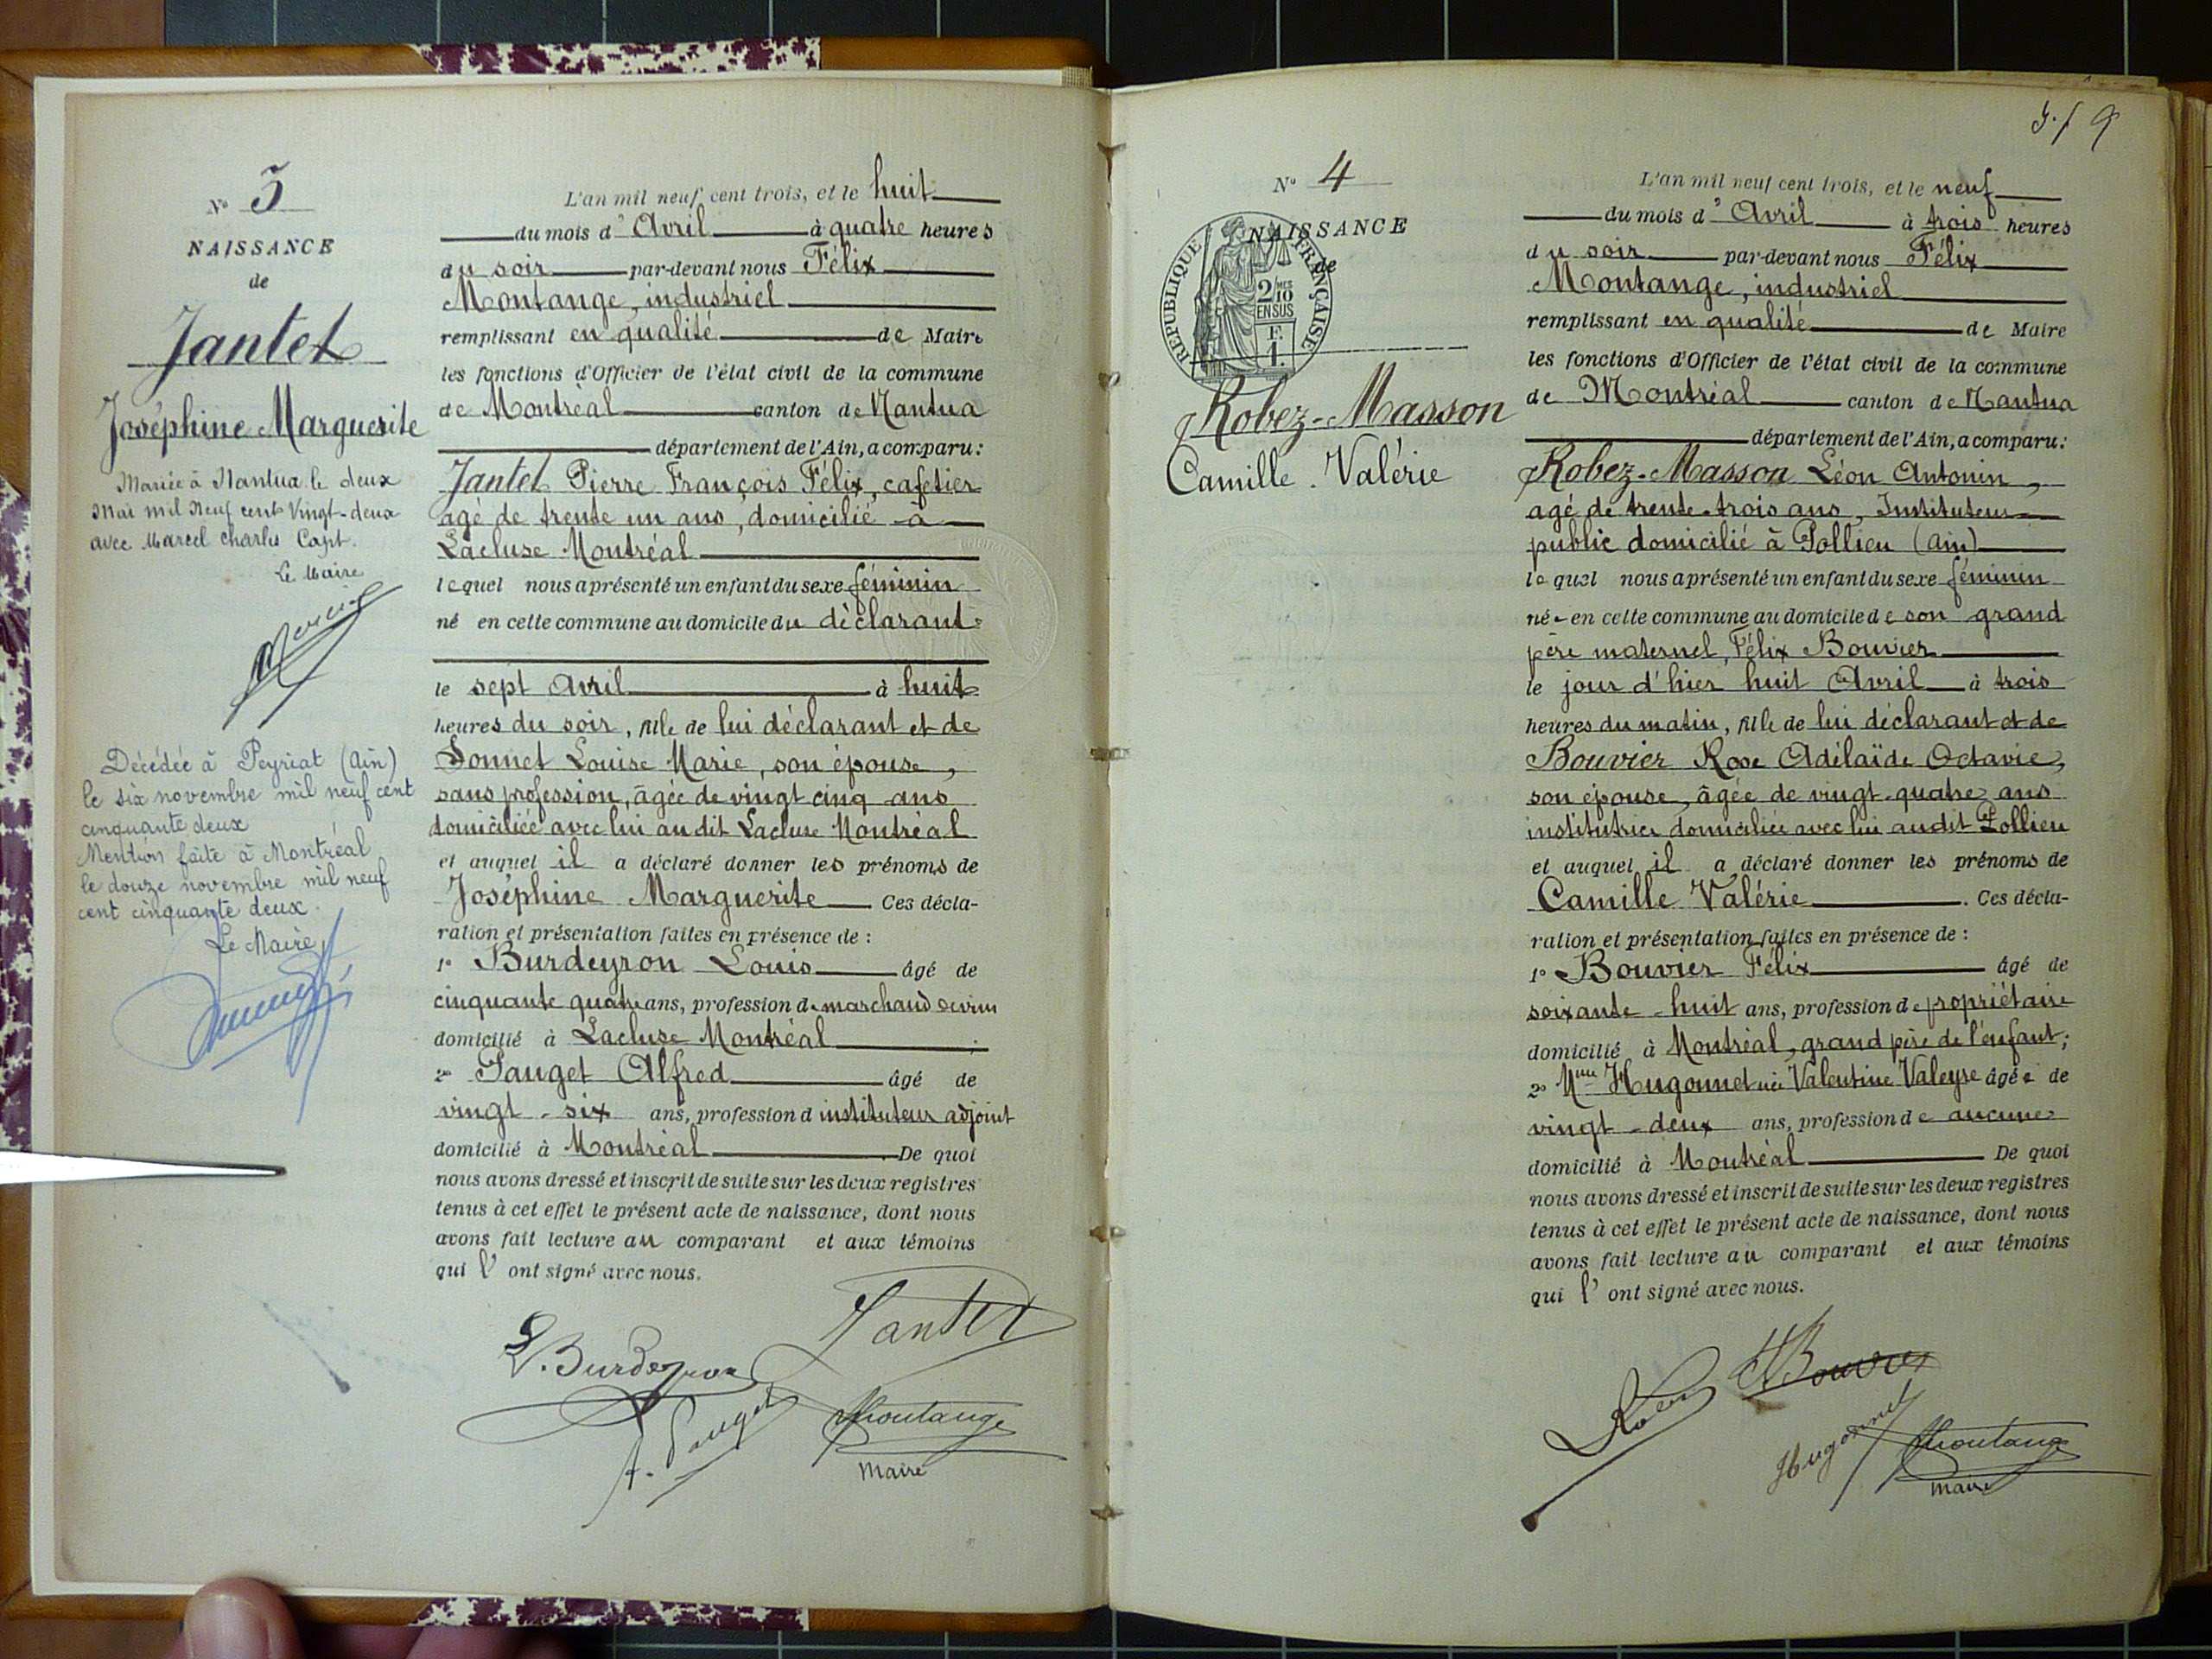 N° 3
NAISSANCE
de
Jantet
Joséphine Marguerite
Mariée à Nantua le deux
Mai mil Neuf cent Vingt-deux
avec Marcel Charles Capt.
Le Maire
Décédée à Peyriat (Ain)
le six novembre mil neuf cent
cinquante deux
Mention faite à Montréal
le douze novembre mil neuf
cent cinquante deux.
Le Maire
L'an mil neuf cent trois, et le huit
du mois d'Avril à quatre heures
du soir par-devant nous Félix
Montange, industriel
remplissant en qualité de Maire
les fonctions d'Officier de l'état civil de la commune
de Montréal canton de Nantua
département de l'Ain, a comparu:
Jantet Pierre François Félix, cafetier
agé de trente un ans, domicilié à
Lacluse Montréal
lequel nous a présenté un enfant du sexe féminin
né en cette commune au domicile du déclarant
le sept Avril à huit
heures du soir, fille de lui déclarant et de
Sonnet Louise Marie, son épouse,
sans profession, âgée de vingt cinq ans
domiciliée avec lui au dit Lacluse Montréal
et auquel il a déclaré donner les prénoms de
Joséphine Marguerite Ces décla-
ration et présentation faites en présence de :
1° Burdeyron Louis âgé de
cinquante quatre ans, profession de marchand de vin
domicilié à Lacluse Montréal ;
2° Pauget Alfred âgé de
vingt-six ans, profession d instituteur adjoint
domicilié à Montréal De quoi
nous avons dressé et inscrit de suite sur les deux registres
tenus à cet effet le présent acte de naissance, dont nous
avons fait lecture au comparant et aux témoins
qui l'ont signé avec nous.
Jantet
L. Burdeyron
A. Pauget
Montange
Maire
9
N° 4
NAISSANCE
de
REPUBLIQUE FRANÇAISE
2/10 MES
EN SUS
1 F.
Robez-Masson
Camille Valérie
L'an mil neuf cent trois, et le neuf
du mois d'Avril à trois heures
du soir par-devant nous Félix
Montange, industriel
remplissant en qualité de Maire
les fonctions d'Officier de l'état civil de la commune
de Montréal canton de Nantua
département de l'Ain, a comparu:
Robez-Masson Léon Antonin,
agé de trente-trois ans, Instituteur
public domicilié à Pollieu (Ain)
lequel nous a présenté un enfant du sexe féminin
né en cette commune au domicile de son grand
père maternel, Félix Bouvier
le jour d'hier huit Avril à trois
heures du matin, fille de lui déclarant et de
Bouvier Rose Adélaïde Octavie,
son épouse, âgée de vingt-quatre ans
institutrice domiciliée avec lui audit Pollieu
et auquel il a déclaré donner les prénoms de
Camille Valérie. Ces décla-
ration et présentation faites en présence de :
1° Bouvier Félix âgé de
soixante-huit ans, profession de propriétaire
domicilié à Montréal, grand père de l'enfant;
2° Mme Hugonnet née Valentine Valeyse âgée de
vingt-deux ans, profession de aucune
domicilié à Montréal De quoi
nous avons dressé et inscrit de suite sur les deux registres
tenus à cet effet le présent acte de naissance, dont nous
avons fait lecture au comparant et aux témoins
qui l'ont signé avec nous.
Bouvier
Hugonnet
Montange
Maire